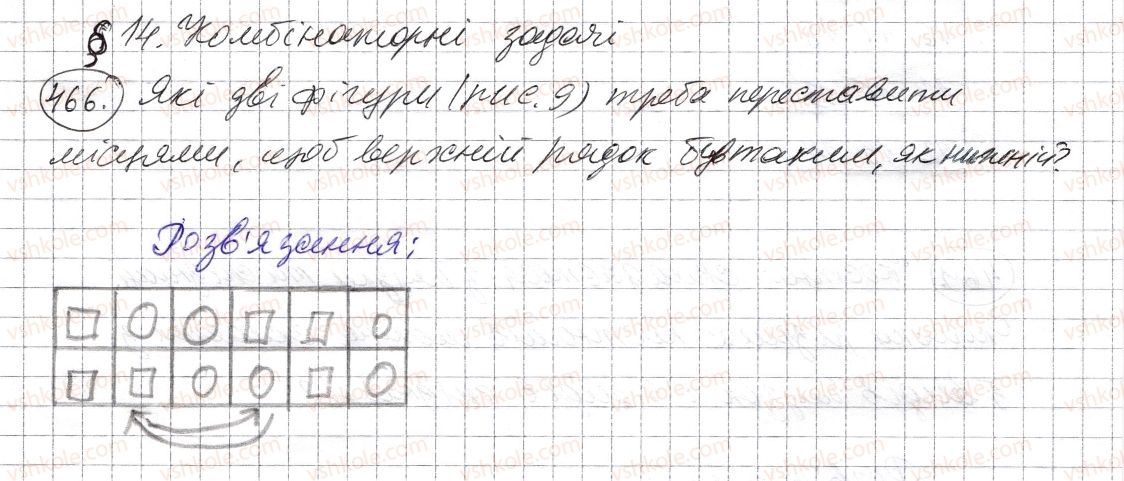 § 14. Комбінаторні задачі
466. Які дві фігури (рис. 9) треба переставити
місцями, щоб верхній рядок був таким, як нижній?
Розв'язання: